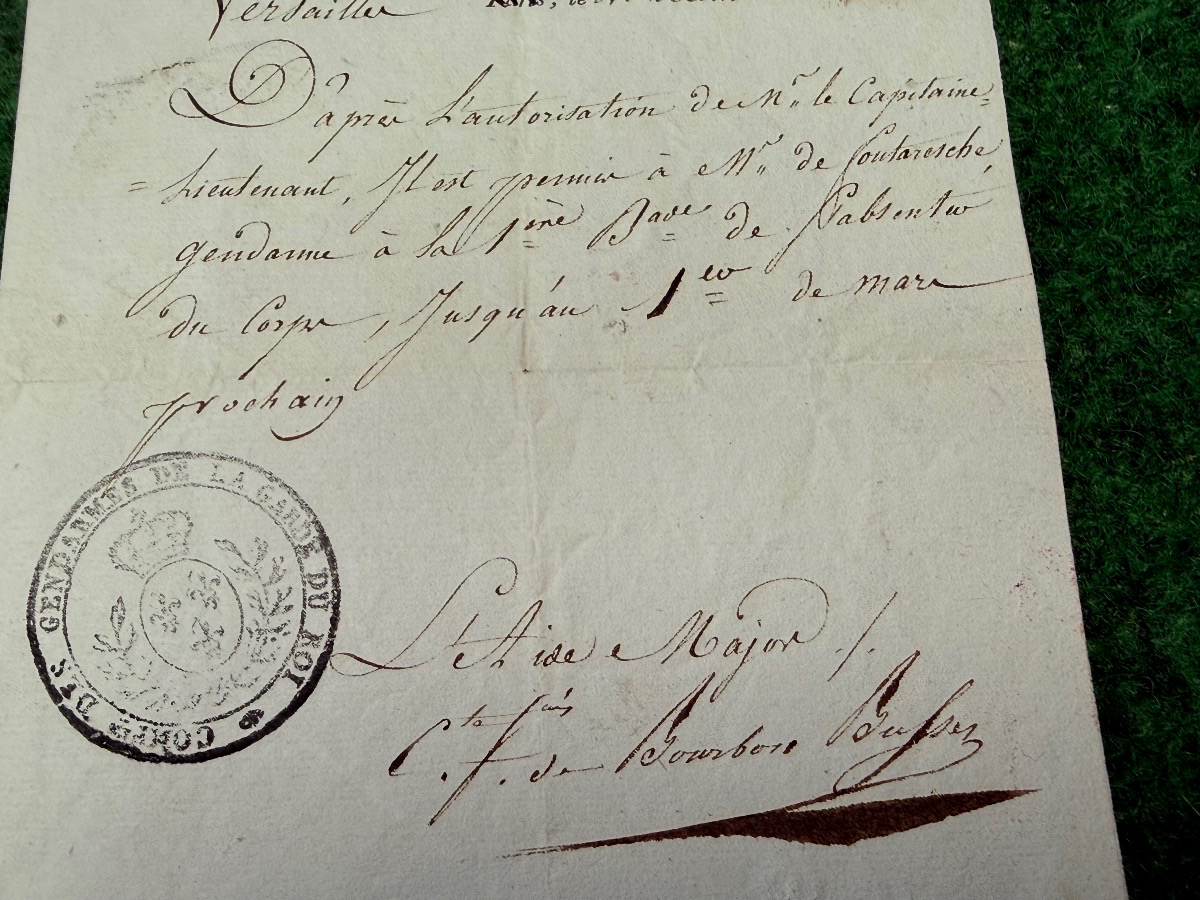 Versailles
D'après l'autorisation de Mr. le Capitaine=
=Lieutenant, Il est permis à Mr. de
gendarme à la 1ière Bade de s'absenter
du Corps, Jusqu'au 1er de mars
prochain
CORPS DES GENDARMES DE LA GARDE DU ROI
L'Aide Major /.
Cte fçois
C. f. de Bourbon Busset